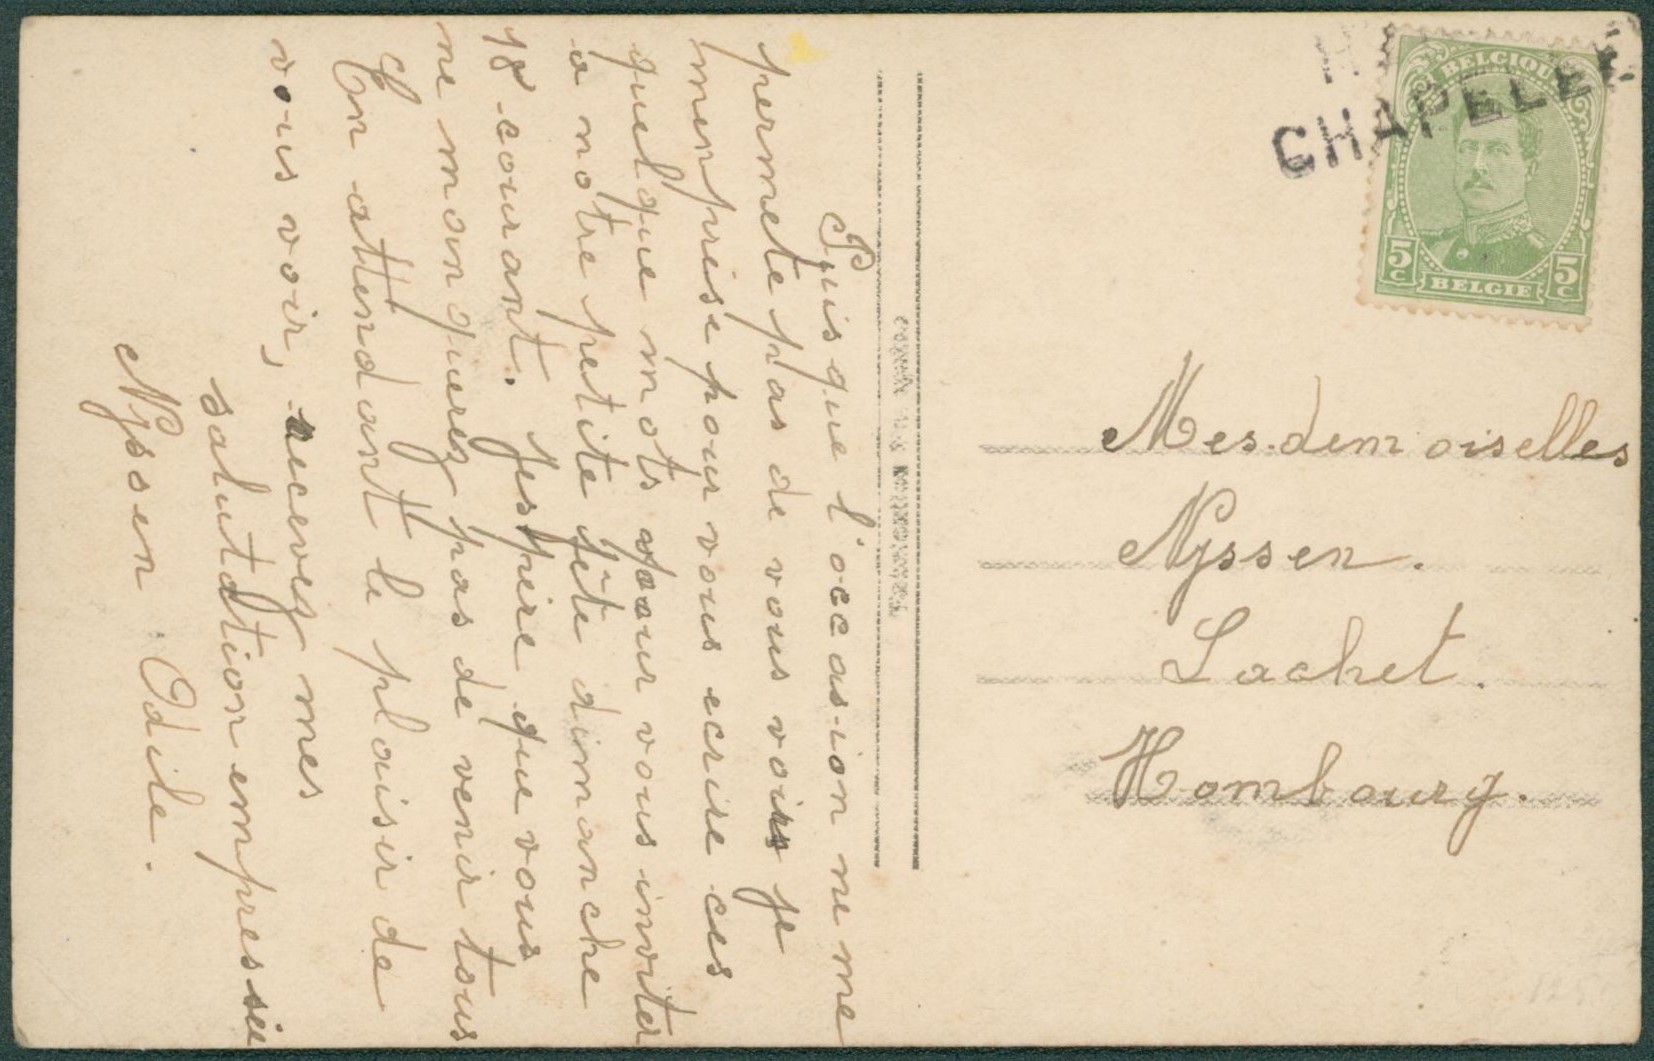 Puisque l'occasion ne me
permete pas de vous voir je
m'enprise pour vous ecrire ces
quelque mots pour vous inviter
a notre petite fête dimanche
18 courant. Jespire que vous
ne manquerez pas de venir tous
En attendant le plaisir de
vous voir, recevez mes
salutation empressée
Nyssen Odile.
CHAPELLE
BELGIQUE
5 C
5 C
BELGIE
Mesdemoiselles
Nyssen.
Lachet.
Hombourg.